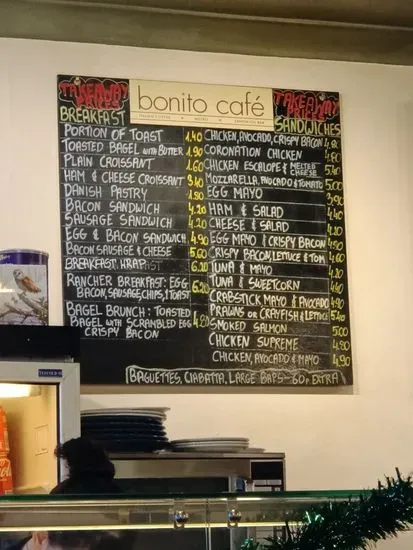 TAKEAWAY
PRICES
bonito café
TAKEAWAY
PRICES
BREAKFAST
PORTION OF TOAST 1.40
TOASTED BAGEL WITH BUTTER 1.90
PLAIN CROISSANT 1.60
HAM & CHEESE CROISSANT 3.40
DANISH PASTRY 1.90
BACON SANDWICH 4.20
SAUSAGE SANDWICH 4.20
EGG & BACON SANDWICH 4.90
BACON SAUSAGE & CHEESE 5.60
BREAKFAST WRAP 6.20
RANCHER BREAKFAST: EGG
BACON, SAUSAGE, CHIPS, 1 TOAST 6.20
BAGEL BRUNCH: TOASTED
BAGEL WITH SCRAMBLED EGG 4.80
CRISPY BACON
SANDWICHES
CHICKEN, AVOCADO, CRISPY BACON
CORONATION CHICKEN
CHICKEN ESCALOPE & MELTED CHEESE
MOZZARELLA, AVOCADO & TOMATO 5.00
EGG MAYO
HAM & SALAD
CHEESE & SALAD
EGG MAYO & CRISPY BACON
CRISPY BACON, LETTUCE & TOM
TUNA & MAYO
TUNA & SWEETCORN
CRABSTICK MAYO & AVOCADO 4.90
PRAWNS OR CRAYFISH & LETTUCE
SMOKED SALMON 5.00
CHICKEN SUPREME 4.90
CHICKEN, AVOCADO & MAYO 4.90
BAGUETTES, CIABATTA, LARGE BAPS - 60P EXTRA